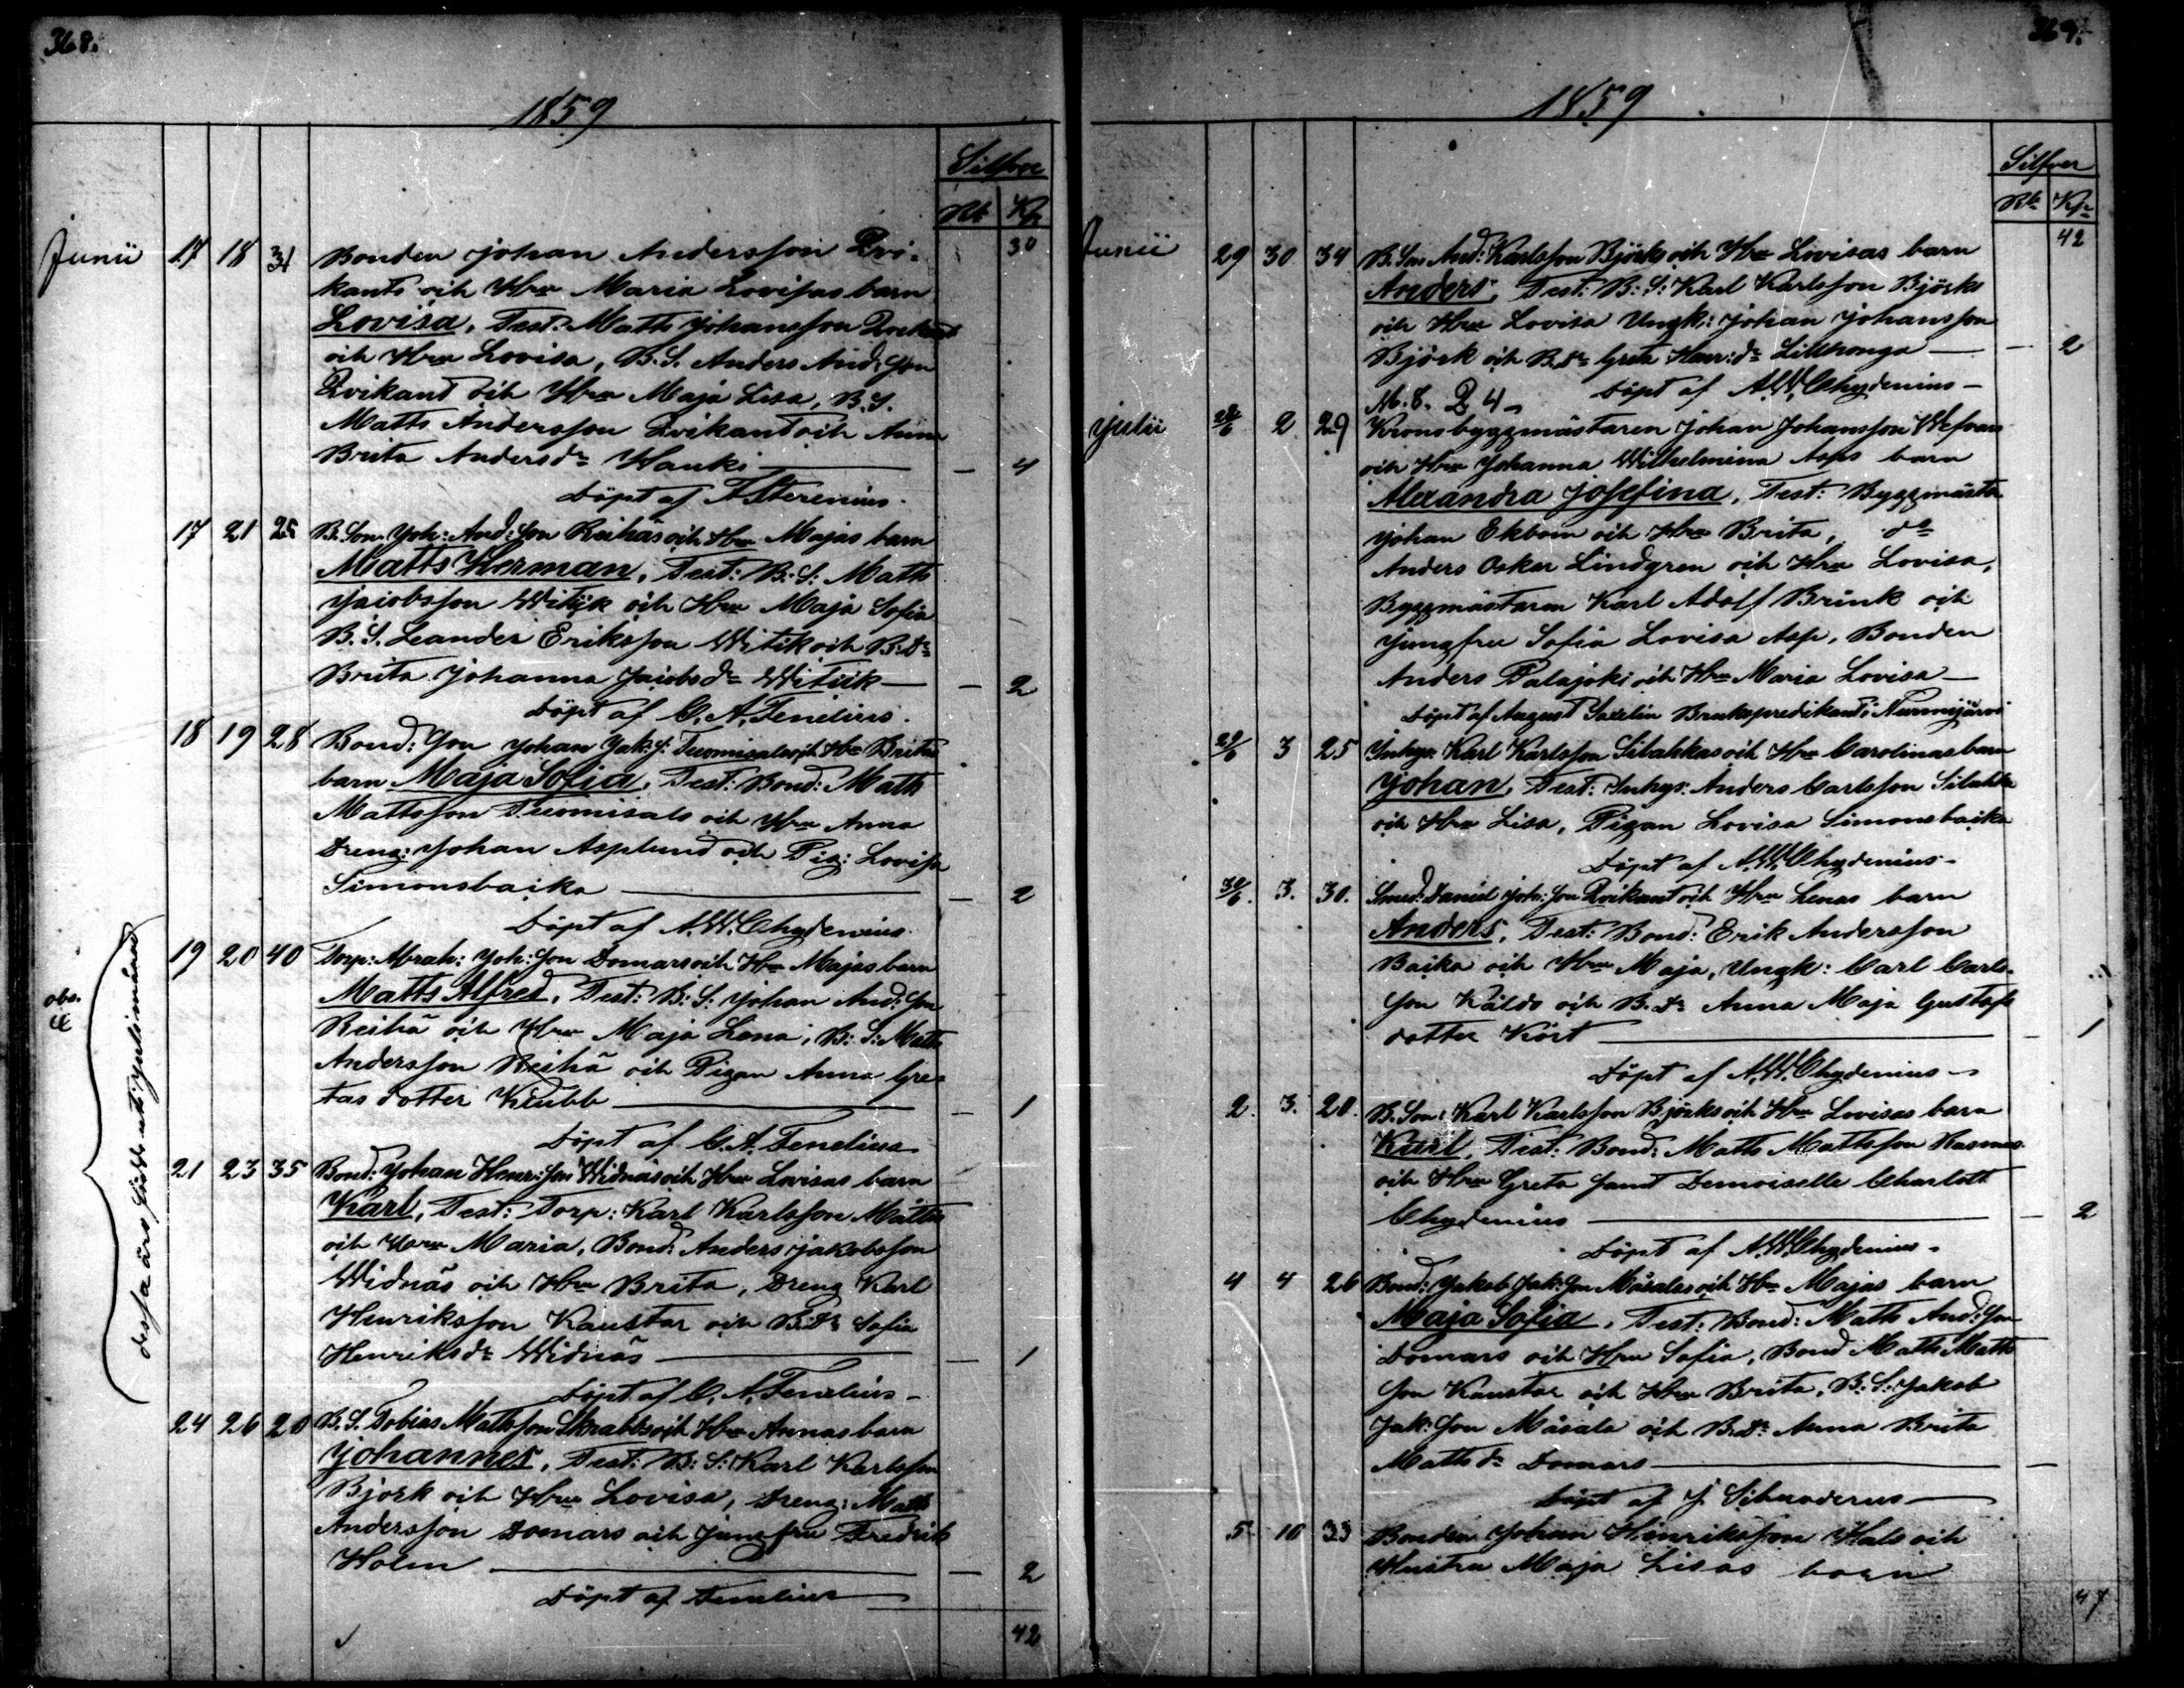 368.
1859
Silfver
Rb Kp
30
Junii 17 18 31 Bonden Johan Andersson Qvi-
kants och Hru Maria Lovisas barn
Lovisa, Test: Matts Johansson
och Hru Lovisa, B. S. Anders And:son
Qvikant och Hru Maja Lisa, B. S.
Matts Andersson Qvikant och Anna
Brita Andersdr Wanki — — 4
Döpt af
17 21 25 B. Son Joh: And:son Reihäs och Hru Majas barn
Matts Herman, Test: B: S: Matts
Jacobsson Witick och Hru Maja Sofia
B. S. Leander Eriksson Witik och B: Dr
Brita Johanna Jacobsdr Witick — — 2
Döpt af C. A. Fenelius.
18 19 28 Bond: Son Johan Jak: s: Tuomisalas och Hru Britas
barn Maja Sofia, Test: Bond: Matts
Mattsson Tuomisalo och Hru Anna
Dreng: Johan Asplund och Pig: Lovisa
Simonsbacka — — 2
Döpt af A. W. Chydenius.
obs.
dessa äro födde uti Julimånad
19 20 40 Torp: Abrah: Joh: Son Domars och Hru Majas barn
Matts Alfred, Test: B: S: Johan And: Son
Reihä och Hru Maja Lena, B: S: Matts
Andersson Reihä och Pigan Anna Gre-
tas dotter Klubb — — 1
Döpt af C. A. Fenelius
21 23 35 Bond: Johan Henr: Son Widnäs och Hru Lovisas barn
Karl, Test: Torp: Karl Karlsson Mattus
och Hru Maria, Bond: Anders Jakobsson
Widnäs och Hru Brita, Dreng Karl
Henriksson Kaustar och B: Dr Sofia
Henriksdr Widnäs — — 1
Döpt af C. A. Fenelius —
24 26 20 B. S. Tobias Mattsson Skrabbs och Hru Annas barn
Johannes, Test: B: S: Karl Karlsson
Björk och Hru Lovisa, Dreng: Matts
Andersson Domars och Jungfru Fredrik
Holm — — 2
Döpt af Fenelius
42
369.
1859
Silfver
Rb Kp
42
Junii 29 30 34 B. Son And: Karlsson Björks och Hru Lovisas barn
Anders, Test: B: S: Karl Karlsson Björks
och Hru Lovisa Ungk: Johan Johansson
Björk och B. Dr Greta Henr: dr Lillkronga — — 2
Döpt af A. W. Chydenius —
M. 8. Q 4
Julii 28/6 2 29 Kronobyggmästaren Johan Johansson Wefvars
och Hru Johanna Wilhelmina Asps barn
Alexandra Josefina, Test: Byggmäst:
Johan Ekbom och Hru Brita, do
Anders Oskar Lindgren och Hru Lovisa,
Byggmästaren Karl Adolf Brink och
Jungfru Sofia Lovisa Asp, Bonden
Anders Palajoki och Hru Maria Lovisa —
Döpt af August Brukspredikant i Nurmijärvi
29/6 3 25 Inhys: Karl Karlsson Silahkas och Hru Carolinas barn
Johan, Test: Inhys: Anders Carlsson Silahka
och Hru Lisa, Pigan Lovisa Simonsbacka
Döpt af A. W. Chydenius —
30/6. 3. 30. Smed: Daniel Joh: Son Qvikant och Hru Lenas barn
Anders, Test: Bond: Erik Andersson
Backa och Hru Maja, Ungk: Carl Carls-
son Käldo och B. Dr Anna Maja Gustafs
dotter Kört — — 1
Döpt af A. W. Chydenius —
2. 3. 20. B. Son: Karl Karlsson Björks och Hru Lovisas barn
Karl, Test: Bond: Matts Mattsson Rasmus
och Hru Greta samt Demoiselle Charlott
Chydenius — — 2
Döpt af A. W. Chydenius —
4 4 26 Bond: Jakob Jak: Son Måsalas och Hru Majas barn
Maja Sofia, Test: Bond: Matts And: Son
Domars och Hru Sofia, Bond Matts Matts
Son Kaustar och Hru Brita, B. S: Jakob
Jak: Son Måsala och B. Dr Anna Brita
Matts dr Domars — —
Döpt af J. Schroderus —
5 10 33 Bonden Johan Hinriksson Hals och
Hustru Maja Lisas barn
47